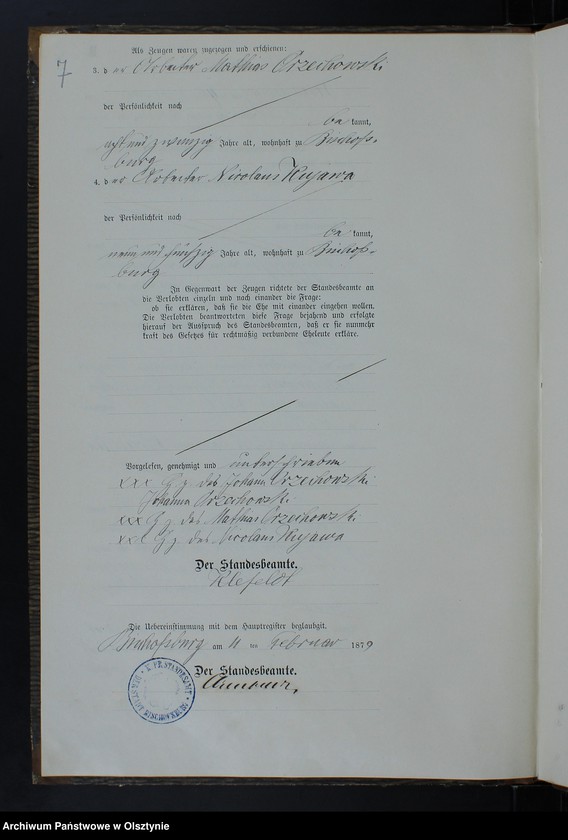 7
Als Zeugen waren zugezogen und erschienen:
3. der Arbeiter Mathias Orzechowski
der Persönlichkeit nach
be kannt,
acht und zwanzig Jahre alt, wohnhaft zu Bischofs-
burg
4. der Arbeiter Nicolaus Kujawa
der Persönlichkeit nach
be kannt,
neun und fünfzig Jahre alt, wohnhaft zu Bischofs-
burg
In Gegenwart der Zeugen richtete der Standesbeamte an
die Verlobten einzeln und nach einander die Frage:
ob sie erklären, daß sie die Ehe mit einander eingehen wollen.
Die Verlobten beantworteten diese Frage bejahend und erfolgte
hierauf der Ausspruch des Standesbeamten, daß er sie nunmehr
kraft des Gesetzes für rechtmäßig verbundene Eheleute erkläre.
Vorgelesen, genehmigt und unterschrieben
xxx Hz des Johann Orzechowski
Johanna Orzechowski
xxx Hz des Mathias Orzechowski
xxx Hz des Nicolaus Kujawa
Der Standesbeamte.
Klefeldt
Die Uebereinstimmung mit dem Hauptregister beglaubigt.
Bischofsburg am 11 ten Februar 1879
Der Standesbeamte.
K. PR. STANDESAMT
Archiwum Państwowe w Olsztynie